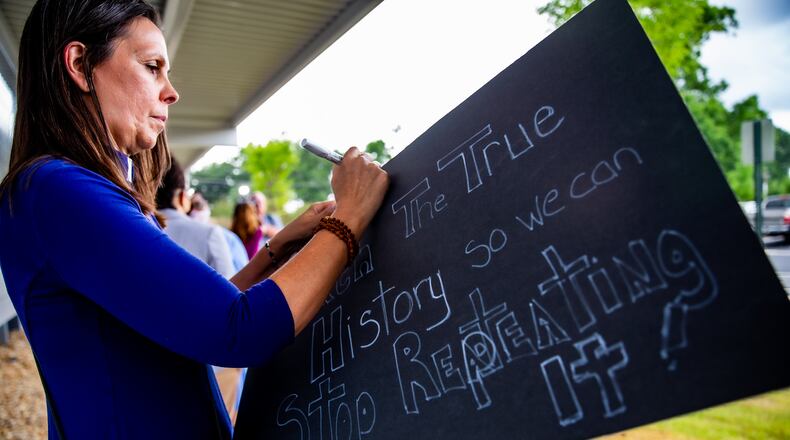 The True
History so we can
Stop Repeating
It!